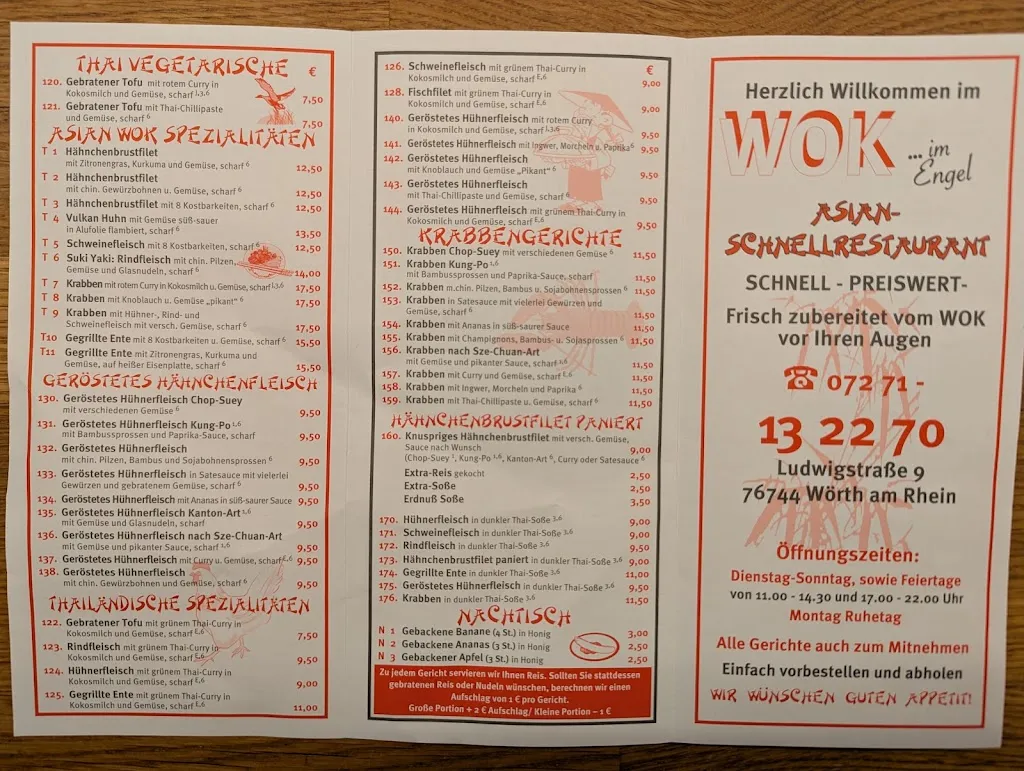 THAI VEGETARISCHE €
120. Gebratener Tofu mit rotem Curry in
Kokosmilch und Gemüse, scharf 1,3,6 7,50
121. Gebratener Tofu mit Thai-Chillipaste
und Gemüse, scharf 6 7,50
ASIAN WOK SPEZIALITÄTEN
T 1 Hähnchenbrustfilet
mit Zitronengras, Kurkuma und Gemüse, scharf 6 12,50
T 2 Hähnchenbrustfilet
mit chin. Gewürzbohnen u. Gemüse, scharf 6 12,50
T 3 Hähnchenbrustfilet mit 8 Kostbarkeiten, scharf 6 12,50
T 4 Vulkan Huhn mit Gemüse süß-sauer
in Alufolie flambiert, scharf 6 13,50
T 5 Schweinefleisch mit 8 Kostbarkeiten, scharf 6 12,50
T 6 Suki Yaki: Rindfleisch mit chin. Pilzen,
Gemüse und Glasnudeln, scharf 6 14,00
T 7 Krabben mit rotem Curry in Kokosmilch u. Gemüse, scharf 1,3,6 17,50
T 8 Krabben mit Knoblauch u. Gemüse „pikant“ 6 17,50
T 9 Krabben mit Hühner-, Rind- und
Schweinefleisch mit versch. Gemüse, scharf 6 17,50
T10 Gegrillte Ente mit 8 Kostbarkeiten u. Gemüse, scharf 6 15,50
T11 Gegrillte Ente mit Zitronengras, Kurkuma und
Gemüse, auf heißer Eisenplatte, scharf 6 15,50
GERÖSTETES HÄHNCHENFLEISCH
130. Geröstetes Hühnerfleisch Chop-Suey
mit verschiedenen Gemüse 6 9,50
131. Geröstetes Hühnerfleisch Kung-Po 1,6
mit Bambussprossen und Paprika-Sauce, scharf 9,50
132. Geröstetes Hühnerfleisch
mit chin. Pilzen, Bambus und Sojabohnensprossen 6 9,50
133. Geröstetes Hühnerfleisch in Satesauce mit vielerlei
Gewürzen und gebratenem Gemüse, scharf 6 9,50
134. Geröstetes Hühnerfleisch mit Ananas in süß-saurer Sauce 9,50
135. Geröstetes Hühnerfleisch Kanton-Art 1,6
mit Gemüse und Glasnudeln, scharf 9,50
136. Geröstetes Hühnerfleisch nach Sze-Chuan-Art
mit Gemüse und pikanter Sauce, scharf 1,6 9,50
137. Geröstetes Hühnerfleisch mit Curry u. Gemüse, scharf E,6 9,50
138. Geröstetes Hühnerfleisch
mit chin. Gewürzbohnen und Gemüse, scharf 6 9,50
THAILÄNDISCHE SPEZIALITÄTEN
122. Gebratener Tofu mit grünem Thai-Curry in
Kokosmilch und Gemüse, scharf E,6 7,50
123. Rindfleisch mit grünem Thai-Curry in
Kokosmilch und Gemüse, scharf E,6 9,50
124. Hühnerfleisch mit grünem Thai-Curry in
Kokosmilch und Gemüse, scharf E,6 9,00
125. Gegrillte Ente mit grünem Thai-Curry in
Kokosmilch und Gemüse, scharf E,6 11,00
126. Schweinefleisch mit grünem Thai-Curry in €
Kokosmilch und Gemüse, scharf E,6 9,00
128. Fischfilet mit grünem Thai-Curry in
Kokosmilch und Gemüse, scharf E,6 9,00
140. Geröstetes Hühnerfleisch mit rotem Curry
in Kokosmilch und Gemüse, scharf 1,3,6 9,50
141. Geröstetes Hühnerfleisch mit Ingwer, Morcheln u. Paprika 6 9,50
142. Geröstetes Hühnerfleisch
mit Knoblauch und Gemüse „Pikant“ 6 9,50
143. Geröstetes Hühnerfleisch
mit Thai-Chillipaste und Gemüse, scharf 6 9,50
144. Geröstetes Hühnerfleisch mit grünem Thai-Curry in
Kokosmilch und Gemüse, scharf E,6 9,50
KRABBENGERICHTE
150. Krabben Chop-Suey mit verschiedenen Gemüse 6 11,50
151. Krabben Kung-Po 1,6
mit Bambussprossen und Paprika-Sauce, scharf 11,50
152. Krabben m.chin. Pilzen, Bambus u. Sojabohnensprossen 6 11,50
153. Krabben in Satesauce mit vielerlei Gewürzen und
Gemüse, scharf 6 11,50
154. Krabben mit Ananas in süß-saurer Sauce 11,50
155. Krabben mit Champignons, Bambus- u. Sojasprossen 6 11,50
156. Krabben nach Sze-Chuan-Art
mit Gemüse und pikanter Sauce, scharf 1,6 11,50
157. Krabben mit Curry und Gemüse, scharf E,6 11,50
158. Krabben mit Ingwer, Morcheln und Paprika 6 11,50
159. Krabben mit Thai-Chillipaste u. Gemüse, scharf 6 11,50
HÄHNCHENBRUSTFILET PANIERT
160. Knuspriges Hähnchenbrustfilet mit versch. Gemüse,
Sauce nach Wunsch 9,00
(Chop-Suey 1, Kung-Po 1,6, Kanton-Art 6, Curry oder Satesauce 6
Extra-Reis gekocht 2,50
Extra-Soße 2,50
Erdnuß Soße 3,50
170. Hühnerfleisch in dunkler Thai-Soße 3,6 9,00
171. Schweinefleisch in dunkler Thai-Soße 3,6 9,00
172. Rindfleisch in dunkler Thai-Soße 3,6 9,50
173. Hähnchenbrustfilet paniert in dunkler Thai-Soße 3,6 9,00
174. Gegrillte Ente in dunkler Thai-Soße 3,6 11,00
175. Geröstetes Hühnerfleisch in dunkler Thai-Soße 3,6 9,50
176. Krabben in dunkler Thai-Soße 3,6 11,50
NACHTISCH
N 1 Gebackene Banane (4 St.) in Honig 3,00
N 2 Gebackene Ananas (3 St.) in Honig 2,50
N 3 Gebackener Apfel (3 St.) in Honig 2,50
Zu jedem Gericht servieren wir Ihnen Reis. Sollten Sie stattdessen
gebratenen Reis oder Nudeln wünschen, berechnen wir einen
Aufschlag von 1 € pro Gericht.
Große Portion + 2 € Aufschlag/ Kleine Portion – 1 €
Herzlich Willkommen im
WOK
...im
Engel
ASIAN-
SCHNELLRESTAURANT
SCHNELL - PREISWERT-
Frisch zubereitet vom WOK
vor Ihren Augen
☎ 072 71 -
13 22 70
Ludwigstraße 9
76744 Wörth am Rhein
Öffnungszeiten:
Dienstag-Sonntag, sowie Feiertage
von 11.00 - 14.30 und 17.00 - 22.00 Uhr
Montag Ruhetag
Alle Gerichte auch zum Mitnehmen
Einfach vorbestellen und abholen
WIR WÜNSCHEN GUTEN APPETIT!